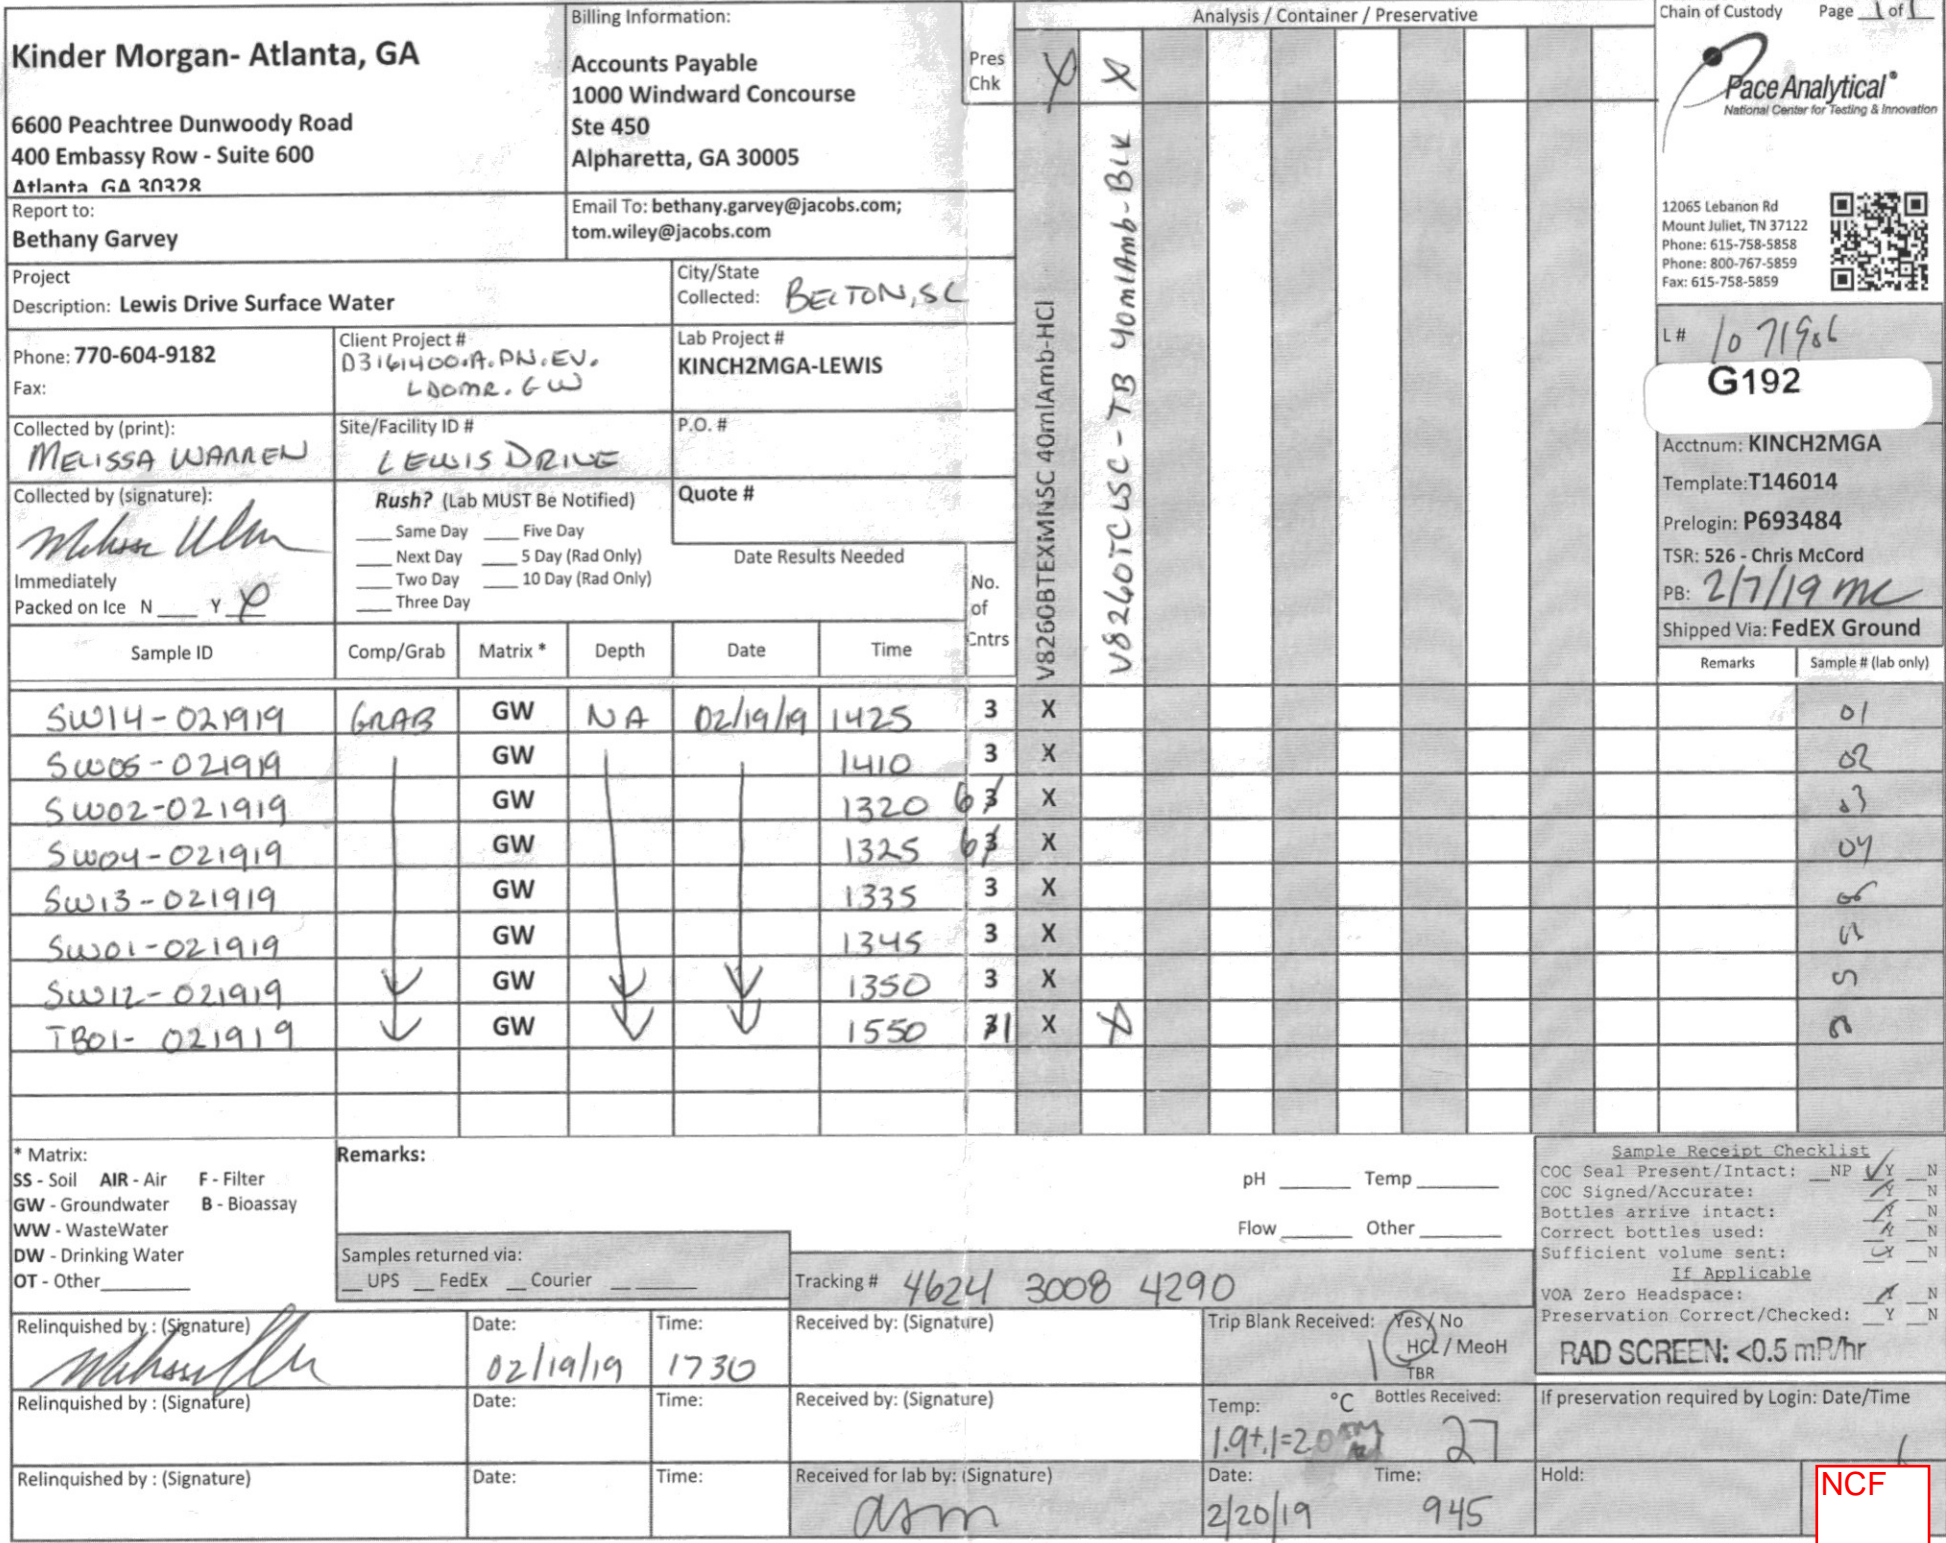 Kinder Morgan- Atlanta, GA
6600 Peachtree Dunwoody Road
400 Embassy Row - Suite 600
Atlanta, GA 30328
Billing Information:
Accounts Payable
1000 Windward Concourse
Ste 450
Alpharetta, GA 30005
Pres
Chk
Analysis / Container / Preservative
X X
Chain of Custody Page 1 of 1
Pace Analytical®
National Center for Testing & Innovation
12065 Lebanon Rd
Mount Juliet, TN 37122
Phone: 615-758-5858
Phone: 800-767-5859
Fax: 615-758-5859
Report to:
Bethany Garvey
Email To: bethany.garvey@jacobs.com;
tom.wiley@jacobs.com
Project
Description: Lewis Drive Surface Water
City/State
Collected: BELTON, SC
Phone: 770-604-9182
Fax:
Client Project #
D3161400.A.PN.EV.
LDOMR.GW
Lab Project #
KINCH2MGA-LEWIS
Collected by (print):
MELISSA WARREN
Site/Facility ID #
LEWIS DRIVE
P.O. #
Collected by (signature):
Immediately
Packed on Ice N ___ Y ___
Rush? (Lab MUST Be Notified)
___ Same Day ___ Five Day
___ Next Day ___ 5 Day (Rad Only)
___ Two Day ___ 10 Day (Rad Only)
___ Three Day
Quote #
Date Results Needed
No.
of
Cntrs
V8260BTEXMNSC 40mlAmb-HCl
V8260TCLSC-TB 40mlAmb-Blk
L# 1071986
G192
Acctnum: KINCH2MGA
Template: T146014
Prelogin: P693484
TSR: 526 - Chris McCord
PB: 2/7/19 mc
Shipped Via: FedEX Ground
Sample ID Comp/Grab Matrix * Depth Date Time Remarks Sample # (lab only)
SW14-021919 GRAB GW NA 02/19/19 1425 3 X 01
SW05-021919 GW 1410 3 X 02
SW02-021919 GW 1320 6 3 X 03
SW04-021919 GW 1325 6 3 X 04
SW13-021919 GW 1335 3 X
SW01-021919 GW 1345 3 X
SW12-021919 GW 1350 3 X
TB01-021919 GW 1550 3 1 X X
* Matrix:
SS - Soil AIR - Air F - Filter
GW - Groundwater B - Bioassay
WW - WasteWater
DW - Drinking Water
OT - Other
Remarks:
pH ___ Temp ___
Flow ___ Other ___
Samples returned via:
__ UPS __ FedEx __ Courier __
Tracking # 4624 3008 4290
Sample Receipt Checklist
COC Seal Present/Intact: __NP __Y __N
COC Signed/Accurate: __Y __N
Bottles arrive intact: __Y __N
Correct bottles used: __Y __N
Sufficient volume sent: __Y __N
If Applicable
VOA Zero Headspace: __Y __N
Preservation Correct/Checked: __Y __N
RAD SCREEN: <0.5 mR/hr
Relinquished by : (Signature)
Date:
02/19/19
Time:
1730
Received by: (Signature)
Trip Blank Received: Yes / No
1 HCL / MeoH
TBR
Relinquished by : (Signature)
Date:
Time:
Received by: (Signature)
Temp: °C
1.9+.1=2.0
Bottles Received:
27
If preservation required by Login: Date/Time
Relinquished by : (Signature)
Date:
Time:
Received for lab by: (Signature)
Date:
2/20/19
Time:
945
Hold:
NCF